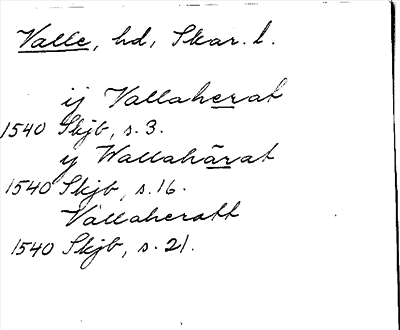 Valle, hd, Skar. l.
ij Vallaherat
1540 Skjb, s. 3.
y Wallahārat
1540 Skjb, s. 16.
Vallaheratt
1540 Skjb, s. 21.